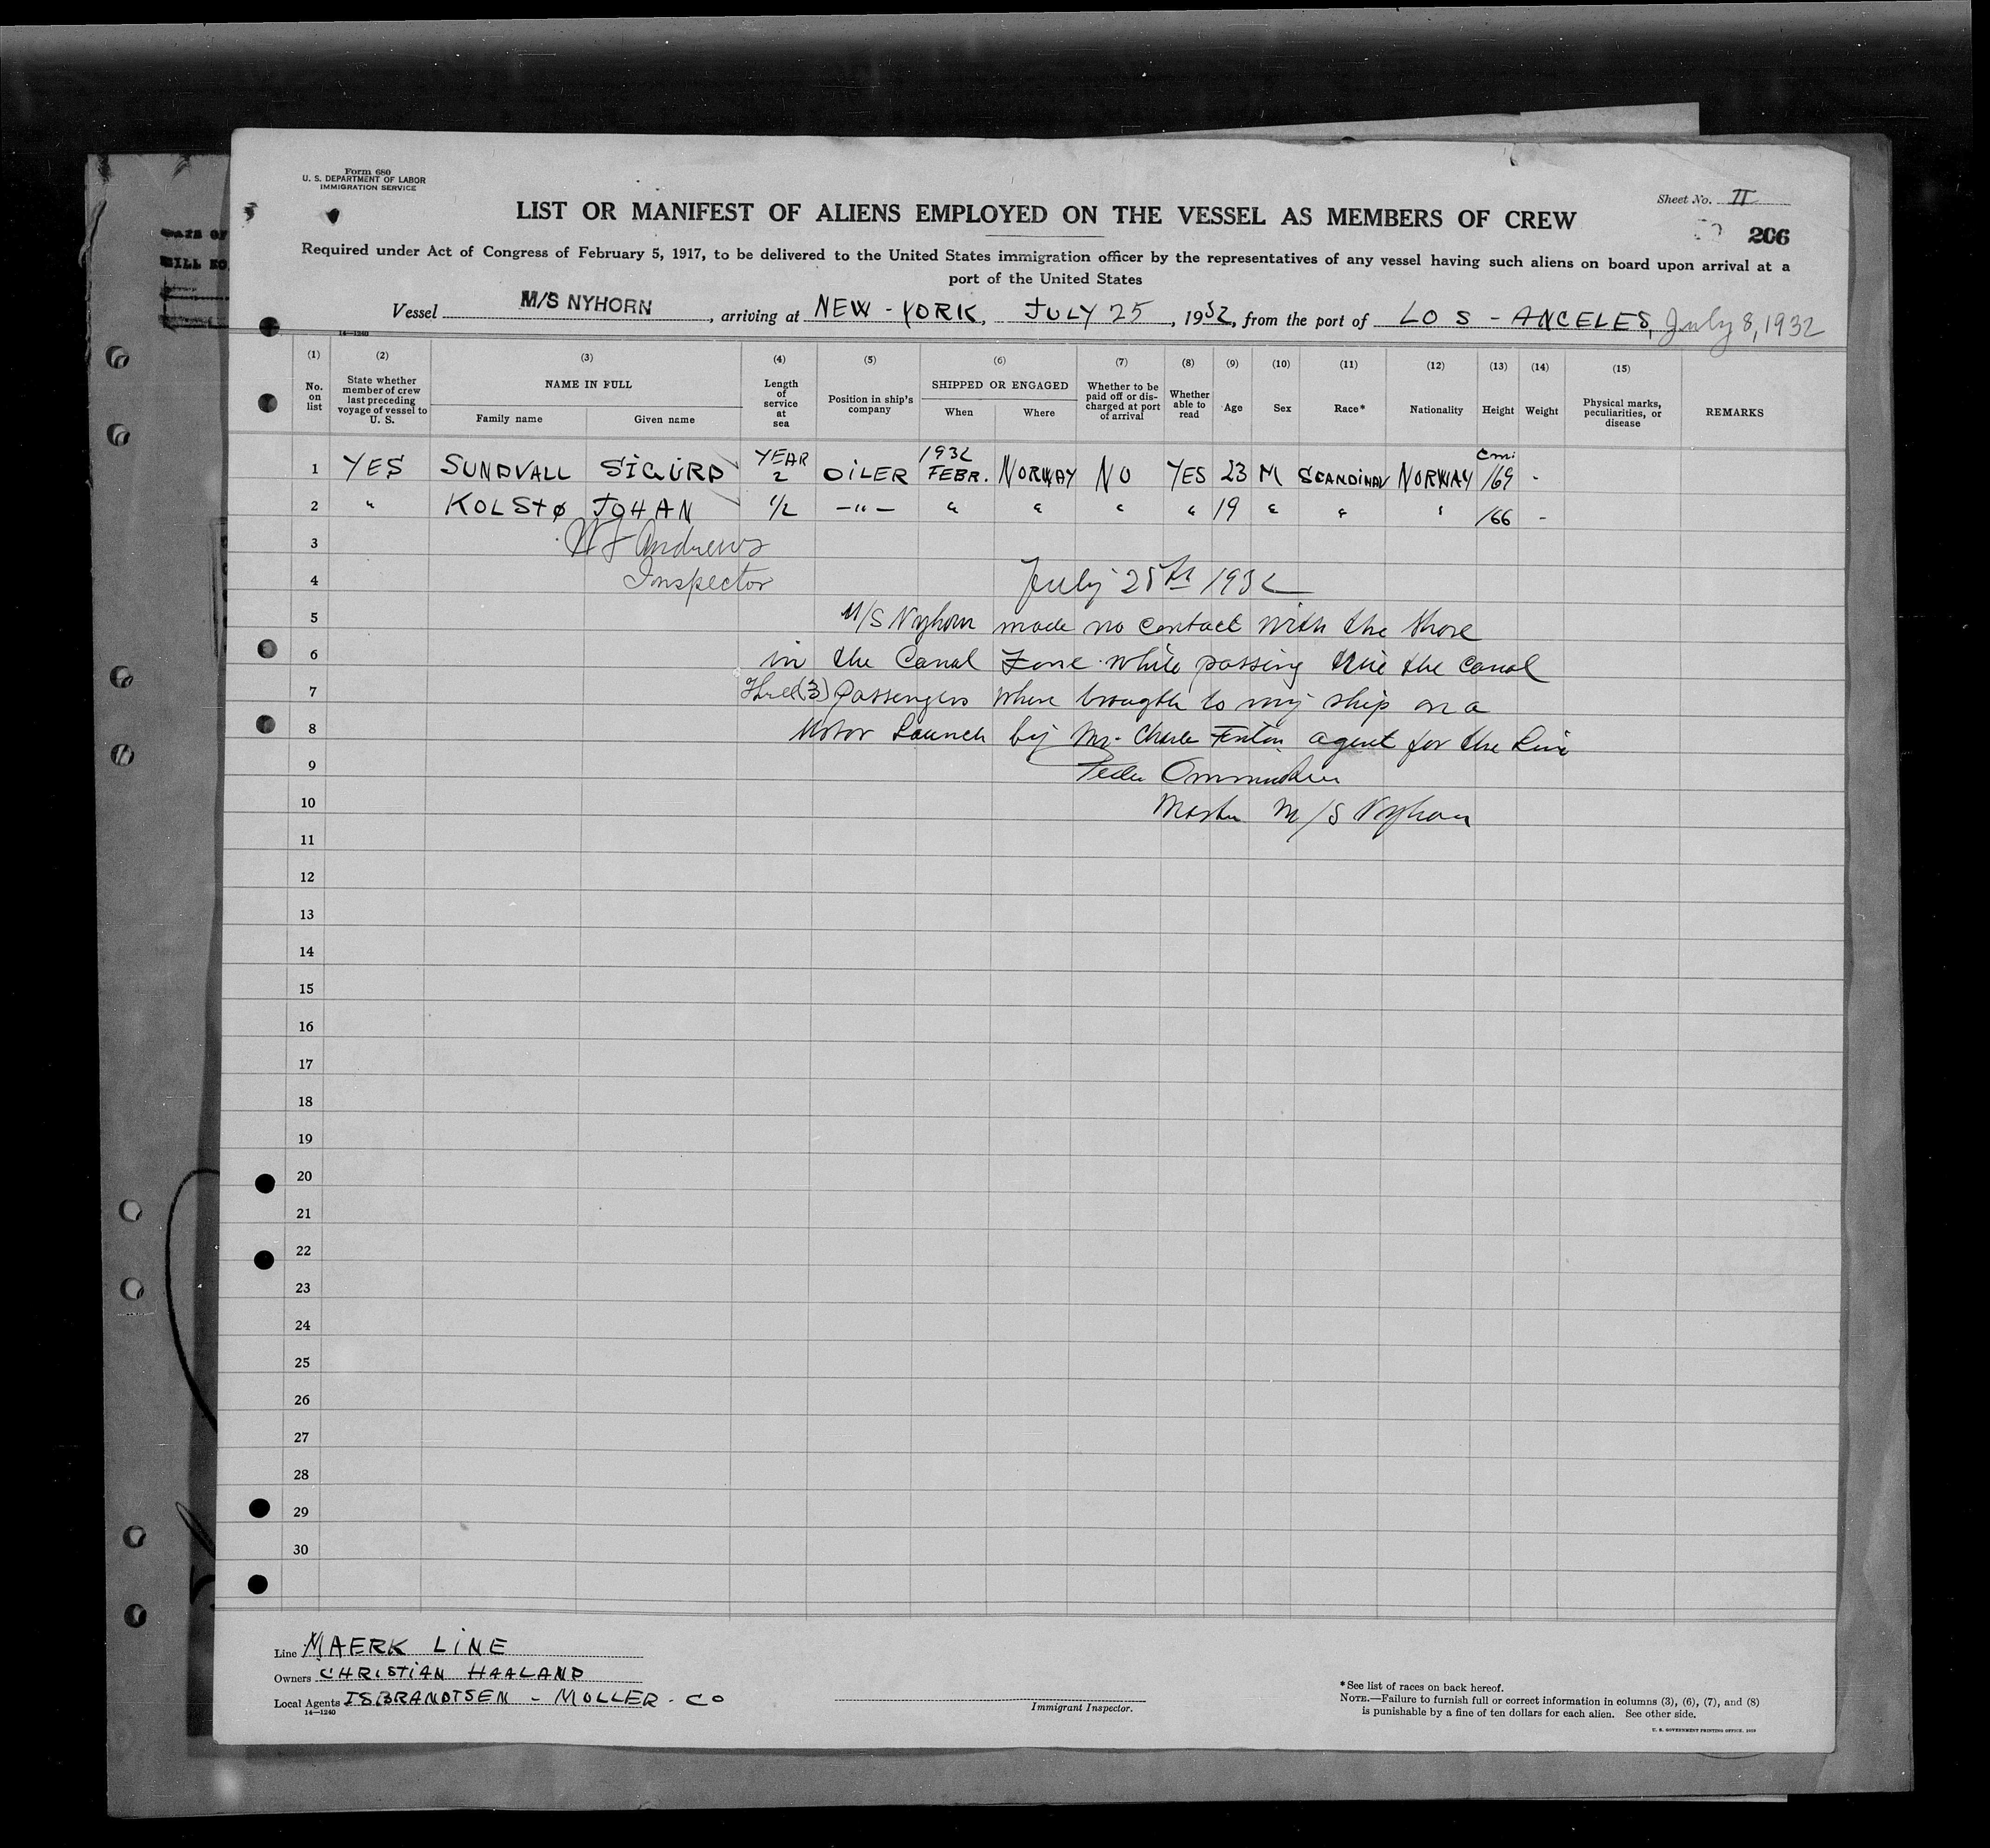 Form 680
U. S. DEPARTMENT OF LABOR
IMMIGRATION SERVICE
Sheet No. II
LIST OR MANIFEST OF ALIENS EMPLOYED ON THE VESSEL AS MEMBERS OF CREW
206
Required under Act of Congress of February 5, 1917, to be delivered to the United States immigration officer by the representatives of any vessel having such aliens on board upon arrival at a
port of the United States
Vessel M/S NYHORN, arriving at NEW-YORK, JULY 25, 1932, from the port of LOS-ANGELES, July 8, 1932
14—1240
(1) (2) (3) (4) (5) (6) (7) (8) (9) (10) (11) (12) (13) (14) (15)
No. on list
State whether member of crew last preceding voyage of vessel to U. S.
NAME IN FULL
Family name
Given name
Length of service at sea
Position in ship's company
SHIPPED OR ENGAGED
When
Where
Whether to be paid off or discharged at port of arrival
Whether able to read
Age
Sex
Race*
Nationality
Height
Weight
Physical marks, peculiarities, or disease
REMARKS
YEAR 1932 cm.
1 YES SUNDVALL SIGURD 2 OILER FEBR. NORWAY NO YES 23 M SCANDINAV NORWAY 169 -
2 " KOLSTØ JOHAN 1/2 —"— " " " " 19 " " " 166 -
3 W J Andrews
4 Inspector July 25th 1932
5 M/S Nyhorn made no contact with the Shore
6 in the Canal Zone while passing true the Canal
7 Three (3) Passengers where brougth to my ship on a
8 Motor Launch by Mr. Charle Fenton agent for the Line
9 Peder
10 Master M/S Nyhorn
11
12
13
14
15
16
17
18
19
20
21
22
23
24
25
26
27
28
29
30
Line MAERK LINE
Owners CHRISTIAN HAALAND
Local Agents ISBRANDTSEN - MOLLER - CO
14—1240
Immigrant Inspector.
*See list of races on back hereof.
NOTE.—Failure to furnish full or correct information in columns (3), (6), (7), and (8)
is punishable by a fine of ten dollars for each alien. See other side.